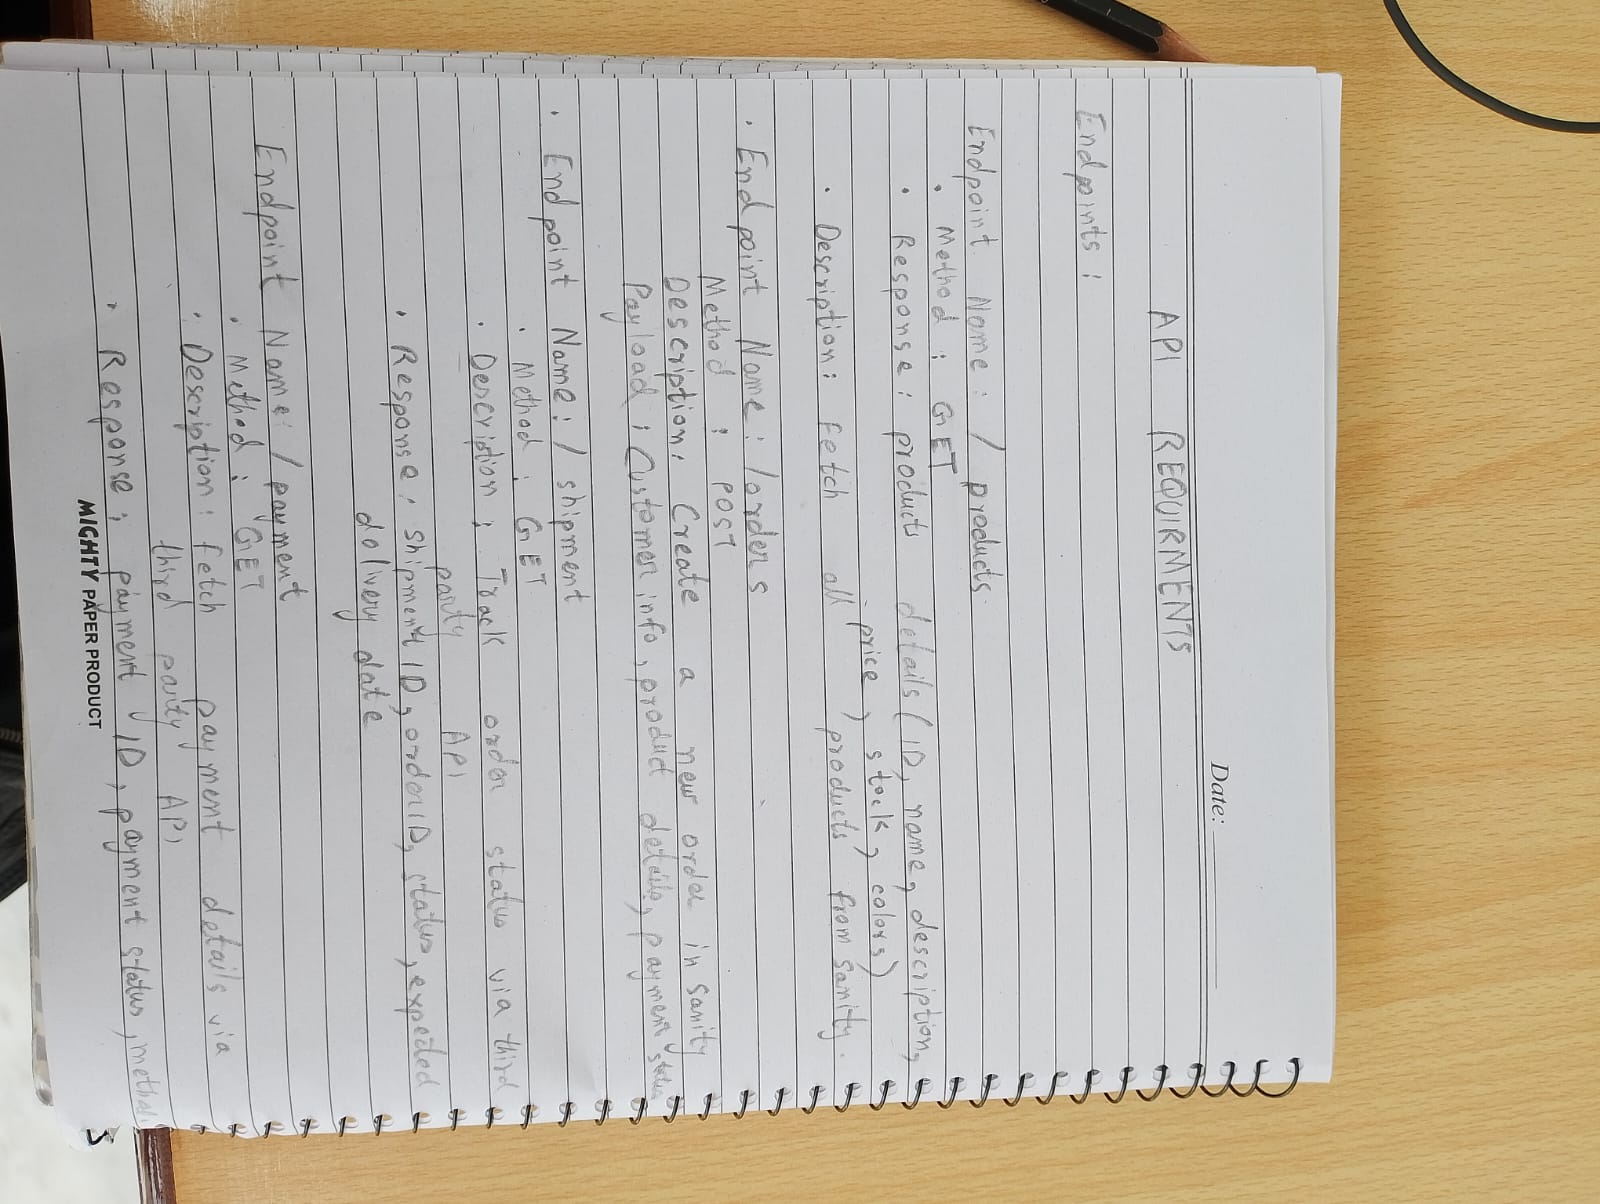 Date:
API REQUIRMENTS
Endpoints :
Endpoint Name : / products
• Method : GET
• Response : products details ( ID, name, description,
price, stock, colors)
• Description : Fetch all products from Sanity.
• Endpoint Name : /orders
Method : POST
Description : Create a new order in Sanity
Payload : Customer info, product details, payment status
• Endpoint Name : / shipment
• Method : GET
• Description : Track order status via third
party API
• Response : Shipment ID, order ID, status, expected
delivery date
Endpoint Name : / payment
• Method : GET
• Description : fetch payment details via
third party API
• Response : payment ID, payment status, method.
MIGHTY PAPER PRODUCT